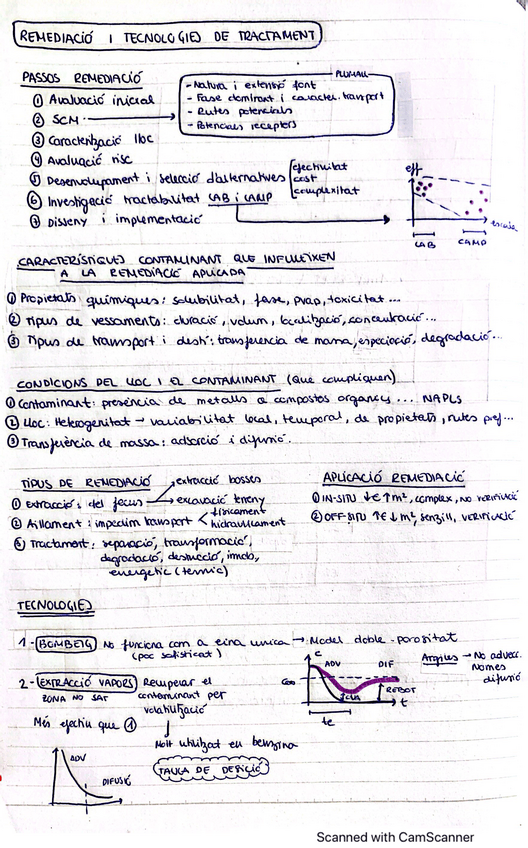 REMEDIACIÓ I TECNOLOGIES DE TRACTAMENT
PASSOS REMEDIACIÓ
① Avaluació inicial
② SCM
PLUMALL
- Natura i extensió font
- Fase dominant i caracter. transport
- Rutes potencials
- Potencials receptors
③ Caracterització lloc
④ Avaluació risc
⑤ Desenvolupament i selecció d'alternatives
efectivitat
cost
complexitat
⑥ Investigació tractabilitat LAB i CAMP
⑦ Disseny i implementació
eff
escala
LAB
CAMP
CARACTERÍSTIQUES CONTAMINANT QUE INFLUEIXEN
A LA REMEDIACIÓ APLICADA
① Propietats químiques: solubilitat, fase, pvap, toxicitat...
② Tipus de vessaments: duració, volum, localització, concentració...
③ Tipus de transport i destí: transferència de massa, especiació, degradació...
CONDICIONS DEL LLOC I EL CONTAMINANT (que compliquen)
① Contaminant: presència de metalls a compostos orgànics ... NAPLs
② Lloc: Heterogenitat → variabilitat local, temporal, de propietats, rutes pref...
③ Transferència de massa: adsorció i difusió.
TIPUS DE REMEDIACIÓ
① Extracció: del focus
extracció bosses
excavació terreny
② Aïllament: impedim transport
físicament
hidràulicament
③ Tractament: separació, transformació,
degradació, destrucció, immob,
energètic (tèrmic)
APLICACIÓ REMEDIACIÓ
① IN-SITU ↓€ ↑m², complex, no verificació
② OFF-SITU ↑€ ↓m², senzill, verificació
TECNOLOGIES
1- BOMBEIG No funciona com a eina unica → Model doble-porositat
(poc sofisticat)
2- EXTRACCIÓ VAPORS Recuperar el
ZONA NO SAT contaminant per
volatilització
Més efectiu que ①
Molt utilitzat en benzina
TAULA DE DESICIÓ
C
ADV
DIF
REBOT
t
te
Argiles → No advecc.
Nomes
difusió
ADV
DIFUSIÓ
Scanned with CamScanner